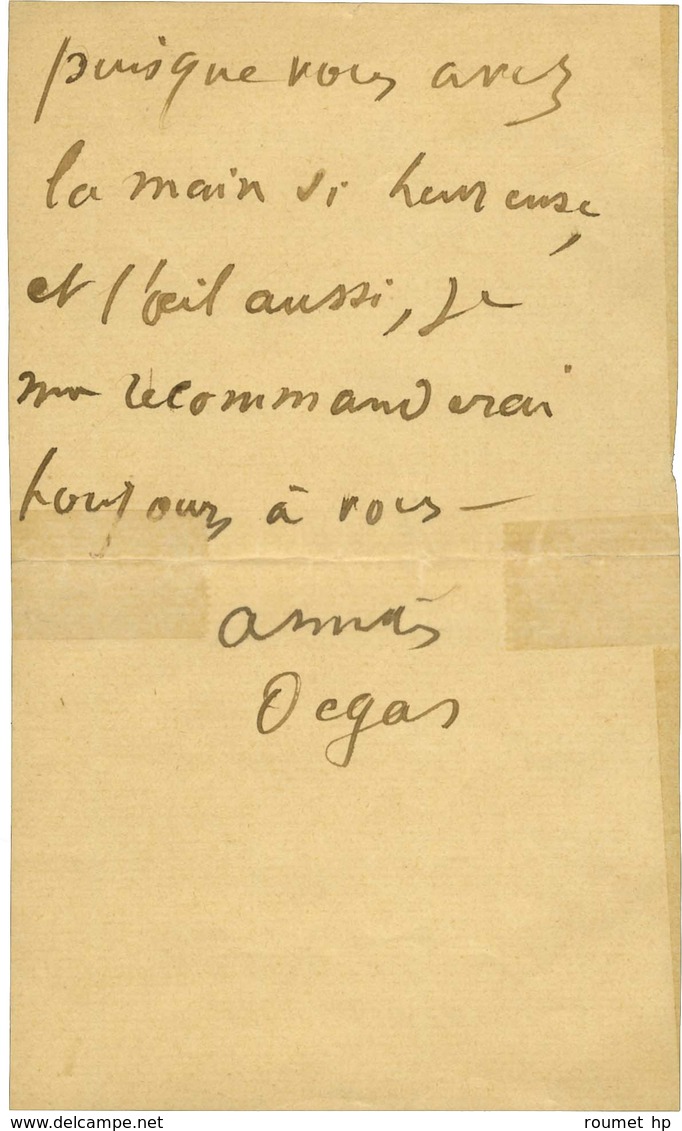 puisque vous avez
la main si heureuse,
et l'œil aussi, je
me recommanderai
toujours à vous —
amitiés
Degas
www.delcampe.net
roumet hp